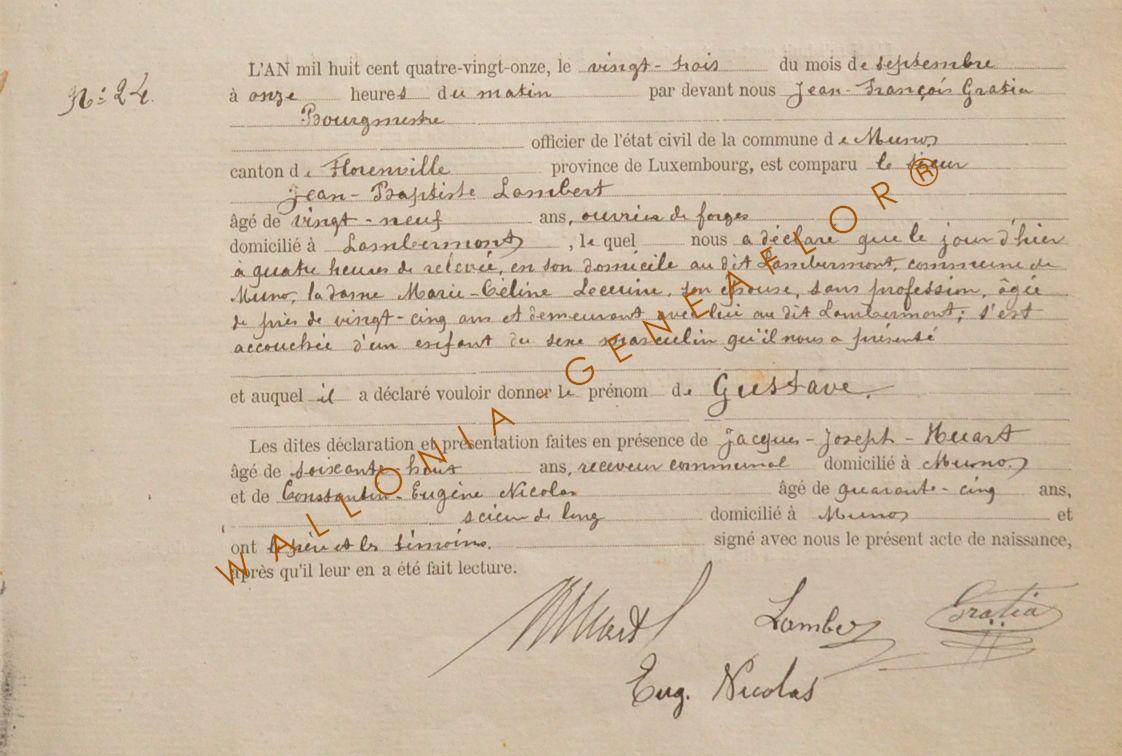 N: 24.
L'AN mil huit cent quatre-vingt-onze, le vingt-trois du mois de septembre
à onze heures du matin par devant nous Jean-François Gratia
Bourgmestre
officier de l'état civil de la commune de Muno
canton de Florenville province de Luxembourg, est comparu le sieur
Jean-Baptiste Lambert
âgé de vingt-neuf ans, ouvrier de forges
domicilié à Lambermont, le quel nous a déclaré que le jour d'hier
à quatre heures de relevée, en son domicile au dit Lambermont, commune de
Muno, la dame Marie-Céline Lecuine, son épouse, sans profession, âgée
de près de vingt-cinq ans et demeurant avec lui au dit Lambermont; s'est
accouchée d'un enfant du sexe masculin qu'il nous a présenté
et auquel il a déclaré vouloir donner le prénom de Gustave.
Les dites déclaration et présentation faites en présence de Jacques-Joseph-Huart
âgé de soixante-huit ans, receveur communal domicilié à Muno
et de Constantin-Eugène Nicolas âgé de quarante-cinq ans,
scieur de long domicilié à Muno et
ont le père et les témoins. signé avec nous le présent acte de naissance,
après qu'il leur en a été fait lecture.
Huart Lambert Gratia
Eug. Nicolas
WALLONIA - GENEAFLOR®